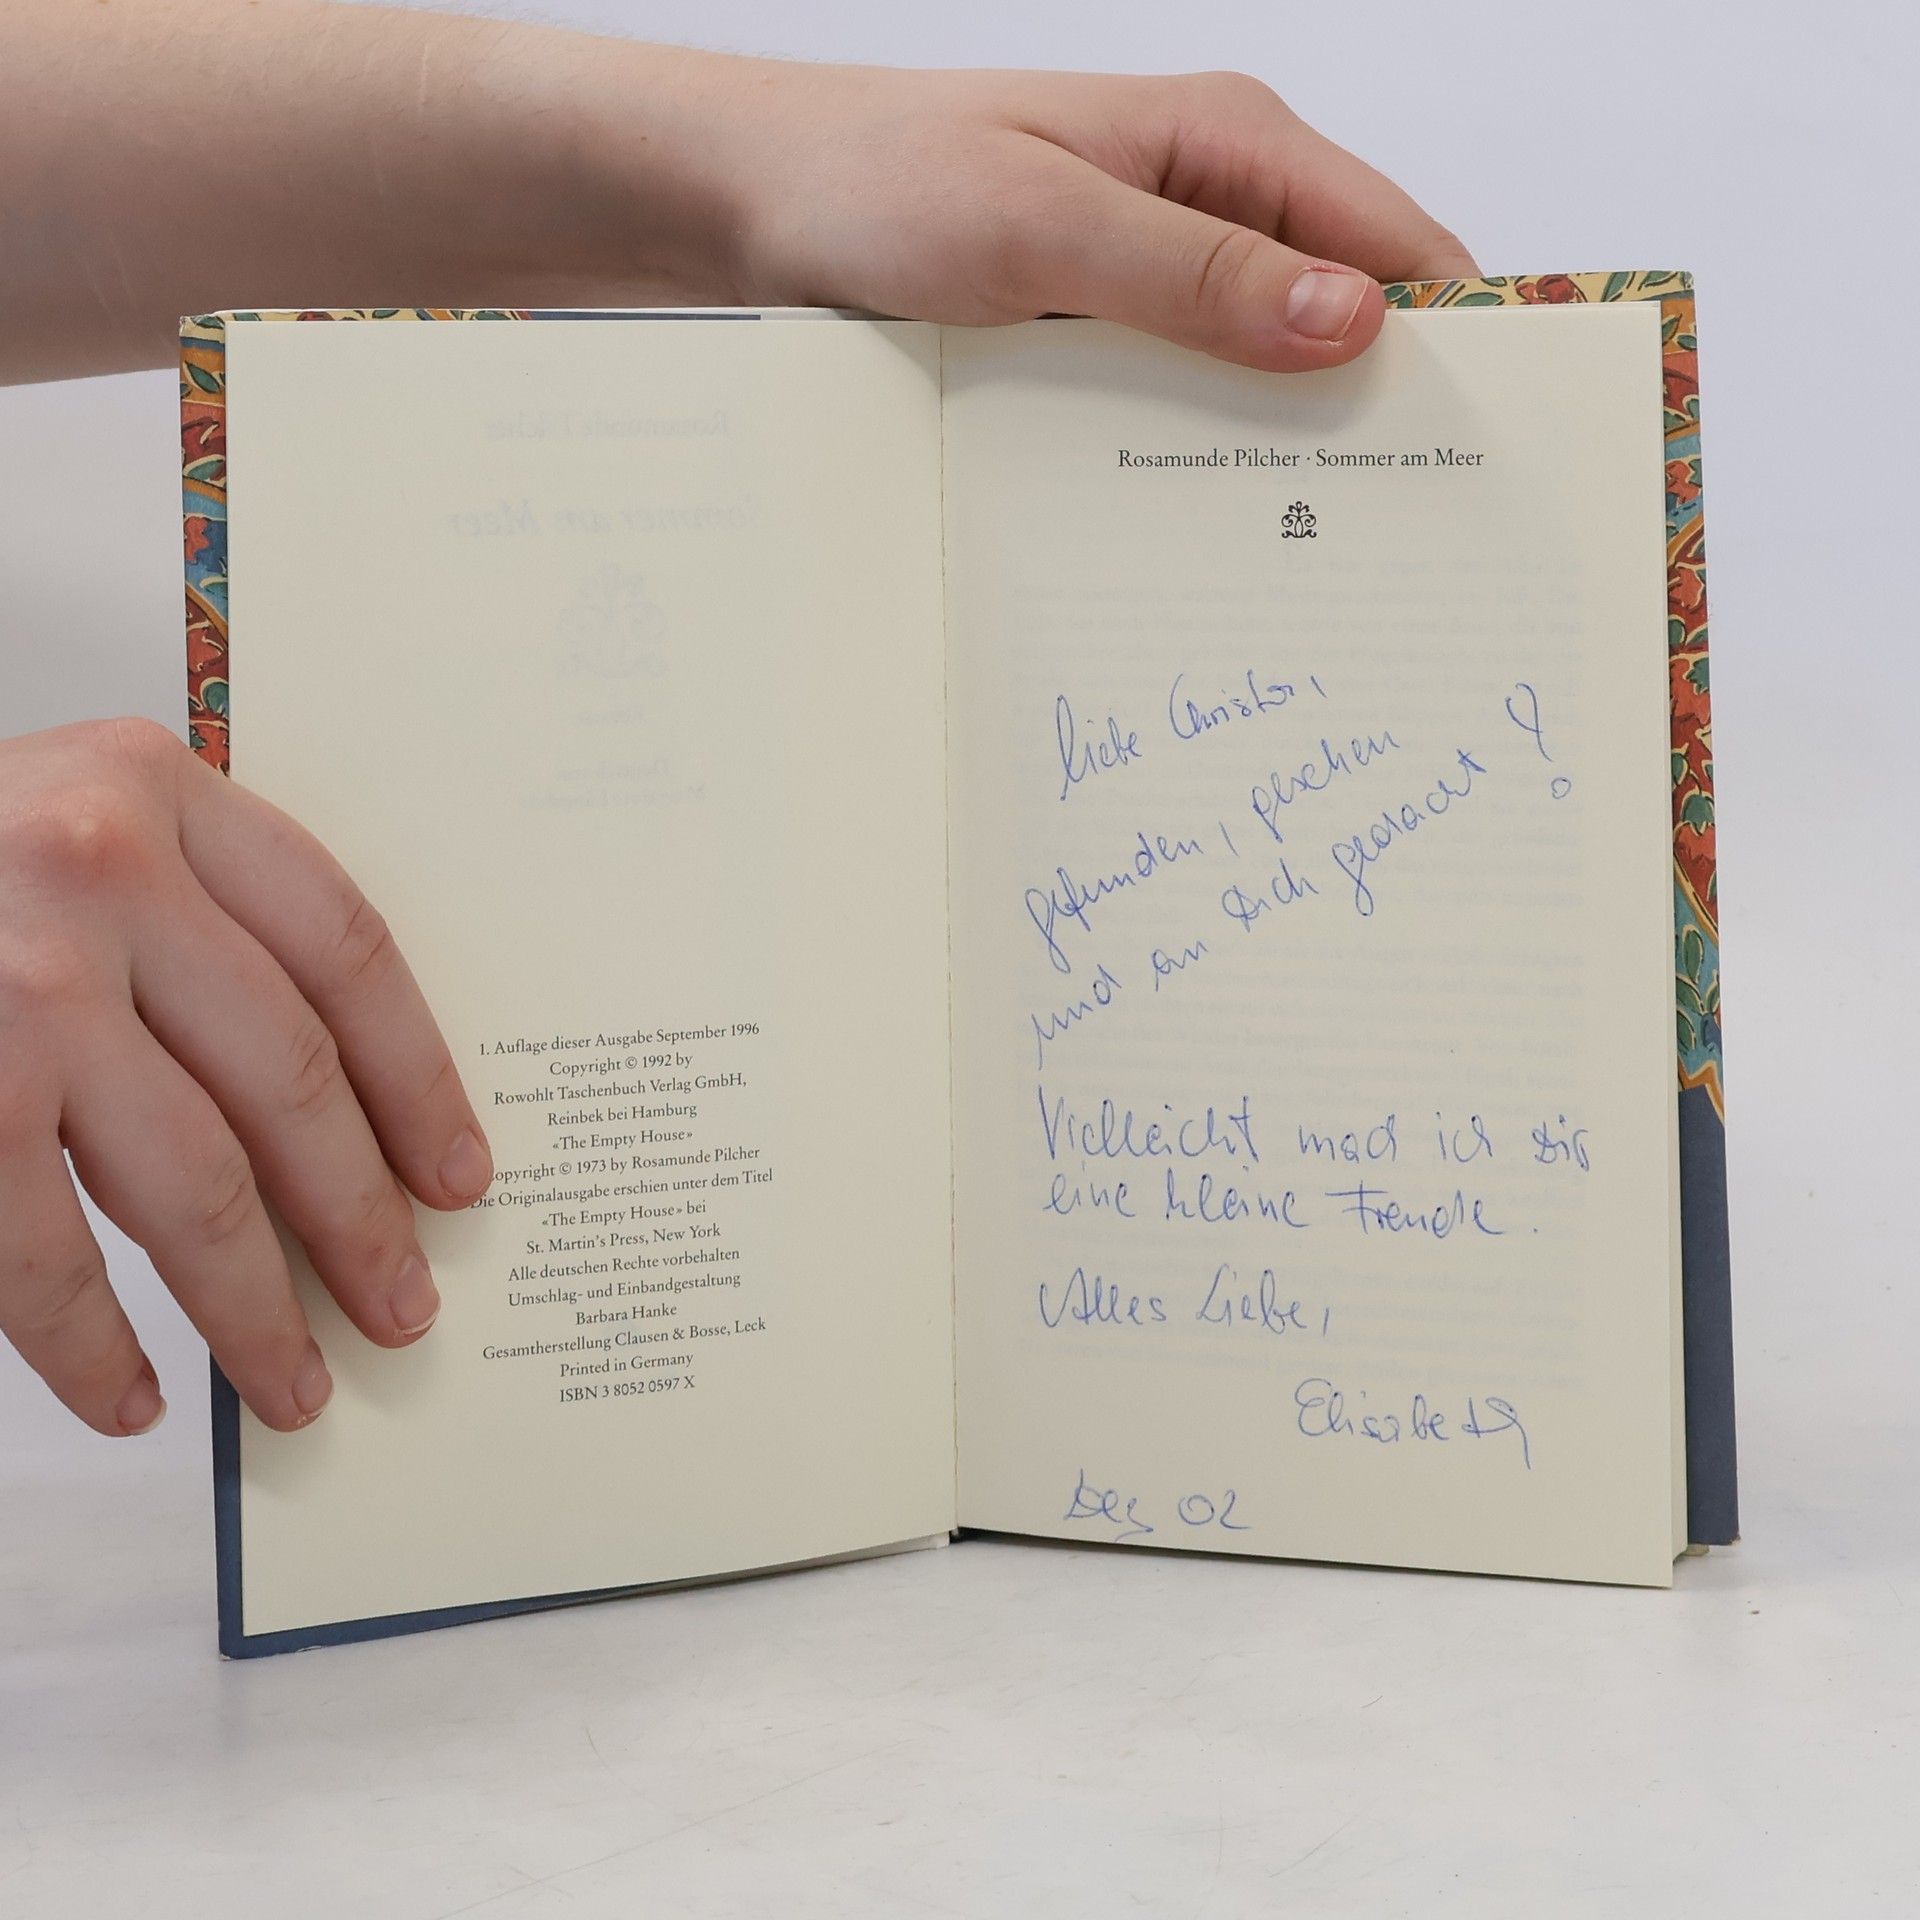 1. Auflage dieser Ausgabe September 1996
Copyright © 1992 by
Rowohlt Taschenbuch Verlag GmbH,
Reinbek bei Hamburg
«The Empty House»
opyright © 1973 by Rosamunde Pilcher
Die Originalausgabe erschien unter dem Titel
«The Empty House» bei
St. Martin's Press, New York
Alle deutschen Rechte vorbehalten
Umschlag- und Einbandgestaltung
Barbara Hanke
Gesamtherstellung Clausen & Bosse, Leck
Printed in Germany
ISBN 3 8052 0597 X
Rosamunde Pilcher · Sommer am Meer
liebe Christa,
gefunden, gesehen
und an Dich gedacht!
Vielleicht mach ich Dir
eine kleine Freude.
Alles Liebe,
Elisabeth
Dez 02